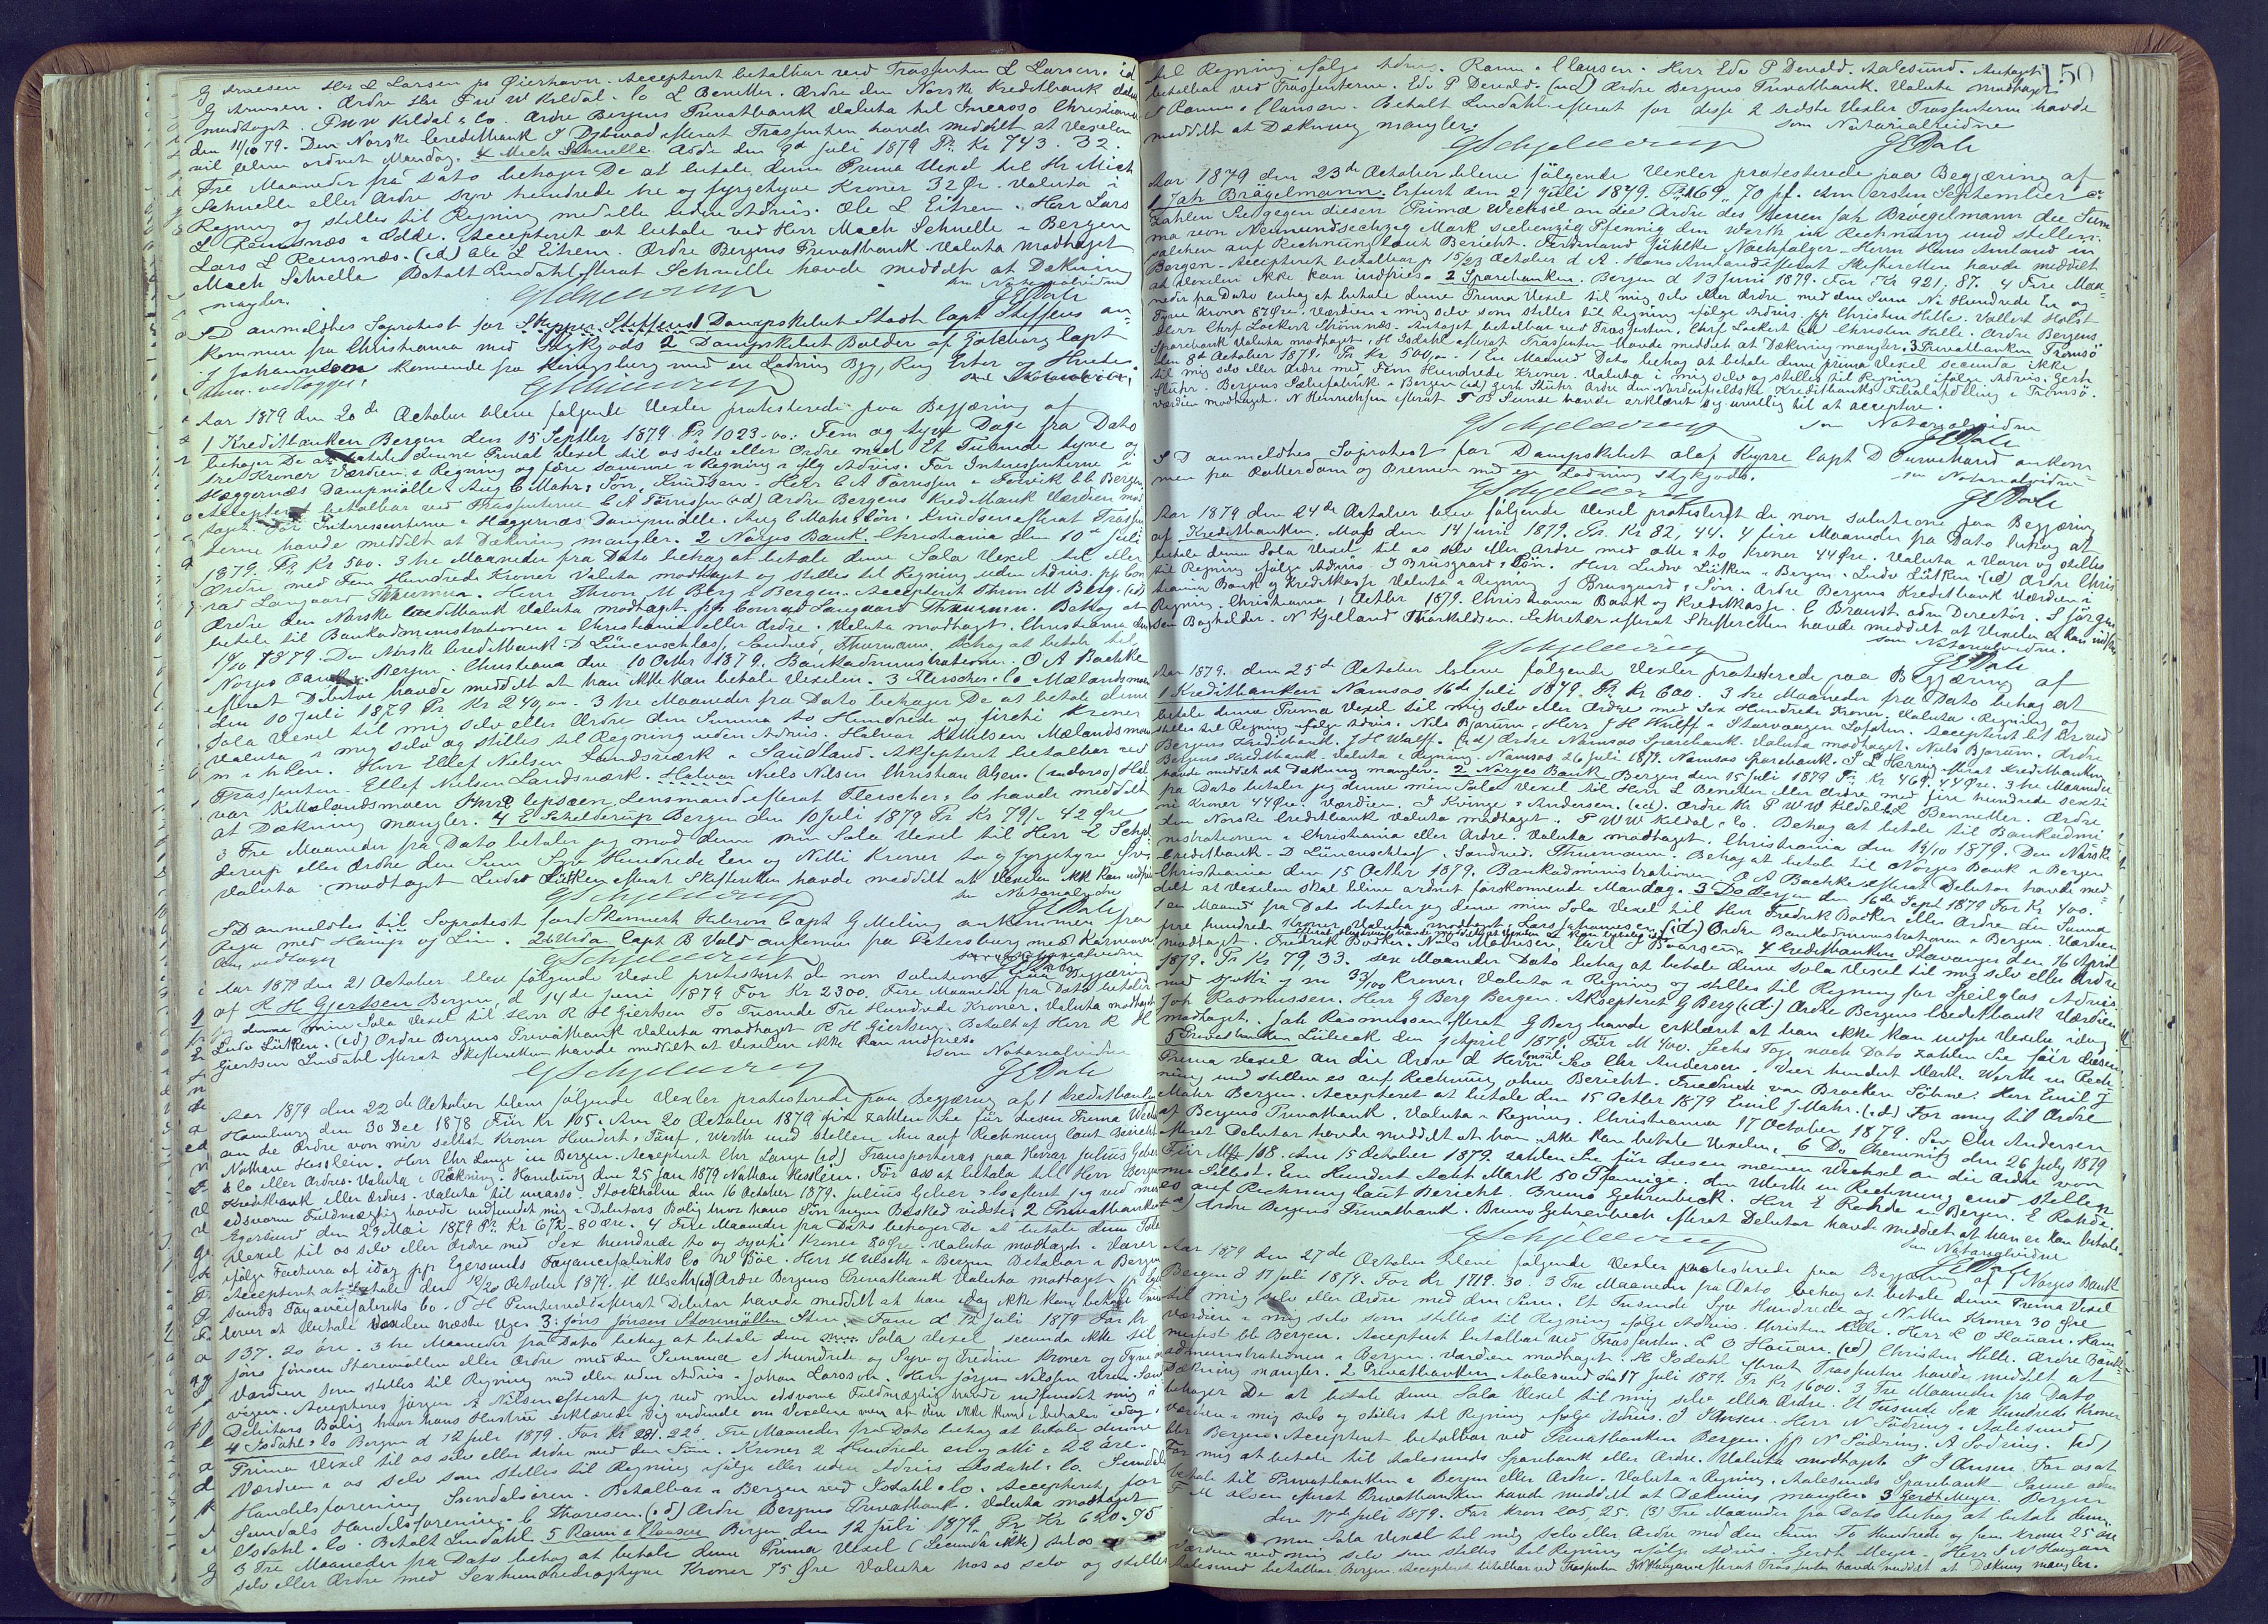 G Arnesen Hr L Larsen pr Øierhavn. Accepteret betalbar ved Trassenten L Larsen. id
G Arnesen. Ordre Hr P W W Kildal & Co L Bennetter. Ordre den Norske Kreditbank Valuta
modtaget. P W W Kildal & Co. Ordre Bergens Privatbank Valuta til Incasso Christiania
den 11/10 79. Den Norske Creditbank efterat Trassenten havde meddelt at Vexelen
vil blive ordnet Mandag. 4 Mich Schnelle. Odde den 9de Juli 1879 Pr Kr 743. 32.
Tre Maaneder fra dato behager De at betale denne Prima Vexel til Hr Mich
Schnelle eller Ordre syv hundrede tre og fyrgetyve Kroner 32 Øre. Valuta i
Regning og stilles til Regning med eller uden Advis. Ole L Eitrem. Herr Lars
L Reinsnæs i Odde. Accepteret at betale ved Herr Mach Schnelle i Bergen
Lars L Reinsnæs. (id) Ole L Eitrem. Ordre Bergens Privatbank Valuta modtaget
Mach Schnelle Betalt Lindahl efterat Schnelle havde meddelt at Dækning
mangler.
S D anmeldtes Søprotest for Skipper Steffens Dampskibet Stadt Capt Steffens an-
kommen fra Christiania med Stykgods 2 Dampskibet Balder af Göteborg Capt
J Johannsson kommende fra Königsberg med en Ladning Byg, Rug Erter og Hvede
Anm. vedlægges.
Aar 1879 den 20de October bleve følgende Vexler protesterede paa Begjæring af
1 Kreditbanken Bergen den 15 Septbr 1879. Pr 1023.00: Fem og tyve Dage fra Dato
behager De at betale denne Prima Vexel til os selv eller Ordre med Et Tusinde tyve og
tre Kroner Værdien i Regning og føre samme i Regning iflg Advis. For Interessenterne i
Hæggernæs Dampmølle Aug C Mohr & Søn, Knudsen. Herr C A Tørrissen i Leirvik bb Bergen
Accepteret betalbar ved Trassenterne C A Tørrissen (id) Ordre Bergens Kreditbank Værdien mod
taget. For Interessenterne i Hæggernæs Dampmølle. Aug C Mohr & Søn. Knudsen efterat Trassen
terne havde meddelt at Dækning mangler. 2 Norges Bank. Christiania den 10de Juli
1879. Pr Kr 500. 3 tre Maaneder fra Dato behag at betale denne Sola Vexel til eller
Ordre med Fem Hundrede Kroner Valuta modtaget og stilles til Regning uden Advis. pp Con
rad Langaard Thurmann. Herr Thron M Berg i Bergen. Accepteret Thron M Berg. (id)
Ordre den Norske Creditbank Valuta modtaget. pp Conrad Langaard Thurmann. Behag at
betale til Bankadministrationen i Christiania eller Ordre. Valuta modtaget. Christiania
14/10 1879. Den Norske Creditbank. D Lünenschlos, Sandved, Thurmann. Behag at betale til
Norges Bank i Bergen. Christiania den 10 Octbr 1879. Bankadministrationen. O A Bachke
efterat Debitor havde meddelt at han ikke kan betale Vexelen. 3 Fleischer & Co Mælandsmoen
den 10 Juli 1879 Pr Kr 240,00. 3 tre Maaneder fra Dato behager De at betale denne
Sola Vexel til mig selv eller Ordre den Summa to Hundrede og firti Kroner
Valuta i mig selv og stilles til Regning uden Advis. Halvar K Nilsen Mælandsmoen
Herr Ellef Nielsen Landsværk i Sandland. Aksepteret betalbar ved
Trassenten. Ellef Nielsen Landsværk. Halvar Niels Nilsen Christian Olsen. (indorso) Hal
var K Mælandsmoen Lensmand efterat Fleischer & Co havde meddelt
at Dækning mangler. 4 E Schelderup Bergen den 10 Juli 1879 Pr Kr 791. 42 Øre
3 Tre Maaneder fra Dato betaler jeg mod denne min Sola Vexel til Herr E Schjel
derup eller Ordre den Sum Syv Hundrede Een og Nitti Kroner to og fyrgetyve Øre
Valuta modtaget Ludv Lütken efterat Skifteretten havde meddelt at Vexelen ikke kan indfries
S D anmeldtes til Søprotest for 1 Skonnert Capt G Meling ankommen fra
Riga med Hamp og Lin. 2 Urda Capt B Vold ankommen fra Petersburg med Kornvarer
Anm vedlægges
Aar 1879 den 21 October blev følgende Vexel protesteret de non solutione paa Begjæring
af R H Gjertsen Bergen, d 14de Juni 1879 For Kr 2300. Fire Maaneder fra Dato betaler
jeg denne min Sola Vexel til Herr R H Gjertsen To Tusinde Tre Hundrede Kroner. Valuta modtaget
Ludv Lütken. (id) Ordre Bergens Privatbank Valuta modtaget R H Gjertsen. Betalt af Herr R H
Gjertsen Lindahl efterat Skifteretten havde meddelt at Vexelen ikke kan indfries.
som Notarialvidne
Aar 1879 den 22de October bleve følgende Vexler protesterede paa Begjæring af 1 Kreditbanken
Hamburg den 30 Dec 1878 Für Kr 105. Am 20 October 1879 zahlen Sie für diesen Prima Wechsel
an die Ordre von mir selbst Kronen Hundert & Fünf, Werth und stellen ihn auf Rechnung laut Bericht
Nathan Hesslein. Herr Chr Lange in Bergen. Accepteret Chr Lange (id) Transporteras paa Herrar Julius Geber
& Co eller Ordres. Valuta i Räkning. Hamburg den 25 Jan 1879 Nathan Hesslein. För oss at betala till Herr Bergens
Kreditbank eller ordres. Valuta til incasso. Stockholm den 16 October 1879. Julius Geber & Co efterat jeg ved min
edsvorne Fuldmægtig havde indfundet mig i Debitors Bolig hvor hans Søn ingen Besked vidste. 2 Privatbanken
Egersund den 29 Mai 1879 Pr Kr 672-80 øre. 4 Fire Maaneder fra Dato behager De at betale denne Sola
Vexel til os selv eller Ordre med Sex hundrede to og sytti Kroner 80 Øre. Valuta modtaget i Varer
ifølge Factura af idag pp Egersunds Fayancefabriks Co W Bøe. Herr H Ulseth i Bergen Betalbar i Bergen
Accepteret at betale den 18/20 October 1879. H Ulseth (id) Ordre Bergens Privatbank Valuta modtaget pp Eger
sunds Fayancefabriks Co. efterat Debitor havde meddelt at han idag ikke kan betale men
lover at betale Vexelen næste Uge. 3. Jöns Jönsen Staremöllen d 12 Juli 1879 For Kr
137. 20 öre. 3 tre Maaneder fra Dato behag at betale denne Sola Vexel secunda ikke til
Jöns Jönsen Staremöllen eller Ordre med den Summa et hundrede og Syv og Tredive Kroner og Tyve
Værdien som stilles til Regning med eller uden Advis. Johan Larsson. Herr Jörgen Nilsson
vigen. Accepteres Jörgen A Nilsen efterat jeg ved min edsvorne Fuldmægtig havde indfundet mig i
Debitors Bolig hvor hans Hustrue erklærede sig vidende om Vexelen men at den ikke kunde betales idag.
4 Isdahl & Co Bergen d 12 Juli 1879. For Kr 281. 22 Tre Maaneder fra Dato behag at betale denne
Prima Vexel til os selv eller ordre med den Sum. Kroner 2 Hundrede en og otti & 22 øre.
Værdien i os selv som stilles til Regning ifølge eller uden Advis Isdahl & Co. Sundals
Handelsforening Sundalsøren. Betalbar i Bergen ved Isdahl & Co. Accepteret for
Sundals Handelsforening. C Thoresen. (id) Ordre Bergens Privatbank. Valuta modtaget
Isdahl & Co. Betalt Lindahl. 5 Ramm & Clausen Bergen den 12 Juli 1879 Pr Kr 620.75
3 Tre Maaneder fra Dato behag at betale denne Prima Vexel (Secunda ikke) til os
selv eller Ordre med Sexhundredeogtyve Kroner 75 Øre Valuta hos os selv og stilles
150
til Regning ifølge Advis. Ramm & Clausen. Herr Edv P Devold. Aalesund. Antaget
betalbar ved Trassenterne. Edv P Devold. (id) Ordre Bergens Privatbank. Valuta modtaget
Ramm & Clausen. Betalt Lindahl efterat for disse 2 sidste Vexler Trassenterne havde
meddelt at Dækning mangler.
som Notarialvidne
Aar 1879 den 23de October bleve følgende Vexler protesterede paa Begjæring af
1 Joh Brögelmann. Erfurt den 21 Juli 1879. Pr M 69. 70 pf. Am ersten September cr
zahlen Sie gegen diesen Prima Wechsel an die Ordre des Herrn Joh Broegelmann die Sum
ma von Neunundsechzig Mark siebenzig Pfennig den Werth in Rechnung und stellen
solchen auf Rechnung laut Bericht. Ferdinand Jühlke Nachfolger. Herrn Hans Amland in
Bergen. Accepteret betalbar p 15/23 October d A. Hans Amland efterat Skifteretten havde meddelt
at Vexelen ikke kan indfries. 2 Sparebanken. Bergen d 13 Juni 1879. For Kr 921, 87. 4 Fire Maa-
neder fra Dato behag at betale denne Prima Vexel til mig selv eller Ordre med den Sum Ni Hundrede En og
Tyve Kroner 87 Øre. Værdien i mig selv som stilles til Regning ifølge Advis. pp Christen Helle. Vollert Holst
Herr Chrf Lockert Strømnæs. Antaget betalbar ved Trassenten. Chrf Lockert (id) Christen Helle. Ordre Bergens
Sparebank Valuta modtaget. H Isdahl efterat Trassenten havde meddelt at Dækning mangler. 3 Privatbanken Tromsø
den 9de October 1879. Pr Kr 500,00. 1 En Maaned Dato behag at betale denne prima Vexel secunda ikke
til mig selv eller Ordre med Fem Hundrede Kroner. Valuta i mig selv og stilles til Regning ifølge Advis. Gerh
Stuhr. Bergens Salefabrik i Bergen (id) Gerh Stuhr Ordre den Nordenfjeldske Kreditbanks Filialafdeling i Tromsø.
Værdien modtaget. N Henrichsen efterat T B Sunde havde erklæret sig uvillig til at acceptere.
som Notarialvidne
S D anmeldtes Søprotest for Dampskibet Olaf Kyrre Capt D Turnehand ankom-
men fra Rotterdam og Bremen med en Ladning Stykgods.
som Notarialvidne
Aar 1879 den 24de October blev følgende Vexel protesteret de non solutione paa Begjæring
af Kreditbanken. Moss den 14 Juni 1879. Pr. Kr 82, 44. 4 fire Maaneder fra Dato behag at
betale denne Sola Vexel til os selv eller Ordre med otti & to Kroner 44 Øre. Valuta i Varer og stilles
til Regning ifølge Advis. J Brusgaard & Søn. Herr Ludv Lütken. Bergen. Ludv Lütken. (id) Ordre Chris
tiania Bank og Kreditkasse Valuta i Regning J Brusgaard & Søn. Ordre Bergens Kreditbank Værdien i
Regning. Christiania 1 Octbr 1879. Christiania Bank og Kreditkasse. C Brandt adm Director. S Jörgen
sen Bogholder. N Kjelland Thorkildsen. Sekretær efterat Skifteretten havde meddelt at Vexelen ei kan indfries
som Notarialvidne.
Aar 1879. den 25de October bleve følgende Vexler protesterede paa Begjæring af
1 Kreditbanken Namsos 16de Juli 1879. Pr Kr 600. 3 tre Maaneder fra Dato behag at
betale denne Prima Vexel til mig selv eller Ordre med Sex Hundrede Kroner. Valuta i Regning og
stilles til Regning ifølge Advis. Nils Bjørum. Herr J H Wulff i Storvaagen Lofoten. Accepteret bet bar ved
Bergens Kreditbank. J H Wulff. (id) Ordre Namsos Sparebank. Valuta modtaget. Nils Bjørum. Ordre
Bergens Kreditbank. Valuta i Regning. Namsos 26 Juli 1879. Namsos Sparebank. S L Herring efterat Kreditbanken
havde meddelt at Dækning mangler. 2 Norges Bank Bergen den 15 Juli 1879 Pr. Kr 469. 44 Øre. 3 tre Maaneder
fra Dato betaler jeg denne min Sola Vexel til Herr L Bennetter eller Ordre med fire hundrede sexti
ni Kroner 44 Øre. Værdien. J Kvinge & Andersen. (id). Ordre Hr P W W Kildal & Co L Bennetter. Ordre
den Norske Creditbank Valuta modtaget. P W W Kildal & Co. Behag at betale til Bankadmi
nistrationen i Christiania eller Ordre. Valuta modtaget. Christiania den 14/10 1879. Den Norske
Creditbank. D Lünenschlos, Sandved. Thurmann. Behag at betale til Norges Bank i Bergen
Christiania den 15 Octbr 1879. Bankadministrationen O A Bachke efterat Debitor havde med-
delt at Vexelen skal blive ordnet førskommende Mandag. 3 Do Bergen den 16de Sept 1879 For Kr 400.
1 en Maaned fra Dato betaler jeg denne min Sola Vexel til Herr Fredrik Bødker eller Ordre den Summa
fire hundrede Kroner Valuta modtaget. Lars Johannesen. (id) Ordre Bankadministrationen i Bergen. Værdien
modtaget. Fredrik Bødker. Nils Mathisen. Carl J Ivarsen. 4 Kreditbanken Stavanger den 16 April
1879. Pr Kr 79, 33. sex Maaneder Dato behag at betale denne Sola Vexel til mig selv eller Ordre
med sytti og ni 33/100 Kroner. Valuta i Regning og stilles til Regning for Speilglas Advis.
Joh Rasmussen. Herr G Berg Bergen. Aksepteret G Berg (id.) Ordre Bergens Creditbank Værdien
modtaget. Joh Rasmussen efterat G Berg havde erklæret at han ikke kan indfrie Vexelen idag.
5 Privatbanken Lübeck den 1 April 1879. Für M 400. Sechs Tage nach Dato zahlen Sie für diesen
Prima Vexel an die Ordre d Herrn Consul Sev Chr Andersen. Vier hundert Mark. Werth in Rech
nung und stellen es auf Rechnung ohne Bericht. Friedrich von Brocken Söhne. Herr Emil J
Mohr Bergen. Accepteret at betale den 15 Octbr 1879 Emil J Mohr. (id) For mig til Ordre
af Bergens Privatbank. Valuta i Regning. Christiania 17 October 1879. Sev Chr Andersen
efterat Debitor havde meddelt at han ikke kan betale Vexelen. 6 Do Chemnitz den 26 July 1879
Für M 108. Am 15 October 1879. zahlen Sie für diesen meinen Wechsel an die Ordre von
mir Selbst. Ein Hundert Acht Mark 50 Pfennige. den Werth in Rechnung und stellen
es auf Rechnung laut Bericht. Bruno Gehrenbeck. Herr E Rohde in Bergen. E Rohde.
(id) Ordre Bergens Privatbank. Bruno Gehrenbeck efterat Debitor havde meddelt at han ei kan betale.
som Notarialvidne
Aar 1879 den 27de October bleve følgende Vexler protesterede paa Begjæring af 1 Norges Bank
Bergen d 17 Juli 1879. For Kr 1719. 30. 3 Tre Maaneder fra Dato behag at betale denne Prima Vexel
til mig selv eller Ordre med den Sum. Et Tusinde Syv Hundrede og Nitten Kroner 30 Øre
Værdien i mig selv som stilles til Regning ifølge Advis. Christen Helle. Herr L O Hauan. Ham
merfest bb Bergen. Accepteret betalbar ved Trassenten. L O Hauan. (id) Christen Helle. Ordre Bank-
administrationen i Bergen. Værdien modtaget. H Isdahl efterat Trassenten havde meddelt at
Dækning mangler. 2 Privatbanken. Aalesund den 17 Juli 1879. Pr Kr 1600. 3 Tre Maaneder fra Dato
behager De at betale denne Sola Vexel til mig selv eller Ordre. Et Tusinde Sex Hundrede Kroner
Værdien i mig selv og stilles til Regning ifølge Advis. J Hansen. Herr N Södring i Aalesund
bbr Bergen. Accepteret betalbar ved Privatbanken Bergen. pp N Södring. A Södring. (id)
For mig at betale til Aalesunds Sparebank eller Ordre. Valuta modtaget J Hansen. For os at
betale til Privatbanken i Bergen eller Ordre. Valuta i Regning. Aalesunds Sparebank
efterat Privatbanken havde meddelt at Dækning mangler. 3 Gerdt Meyer. Bergen
den 17de Juli 1879. For Kron 205, 25. (3) Tre Maaneder fra Dato behag at betale denne
min Sola Vexel til mig selv eller Ordre med den Sum To Hundrede og fem Kroner 25 øre
Værdien ved mig selv som stilles til Regning ifølge Advis. Gerdt Meyer. Herr J N Haugan
Aalesund betalbar Bergen. Accepteret betalbar ved Trassenten J N Haugan efterat Trassenten havde meddelt at Dækning mangler.